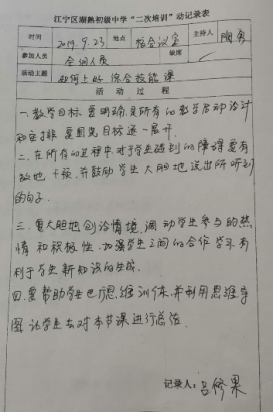 江宁区湖熟初级中学“二次培训”动记录表
时间 2019.9.23 地点 综合议室 主持人 陶勇
参加人员 全组人员 缺席
活动主题 如何上好综合技能课
活动过程
一.教学目标要明确,是所有的教学启动设计
和安排要围先目标逐一展开.
二.在所有的过程中,对于学生碰到的障碍要有
效地干预,并鼓励学生大胆地说出所听到
的句子.
三.要大胆地创设情境,调动学生参与的热
情和积极性,加强学生之间的合作学习有
利于学生新知识的生成.
四.要帮助学生进行思维训练,并利用思维导
图让学生去对本节课进行总结.
记录人: 吕修果